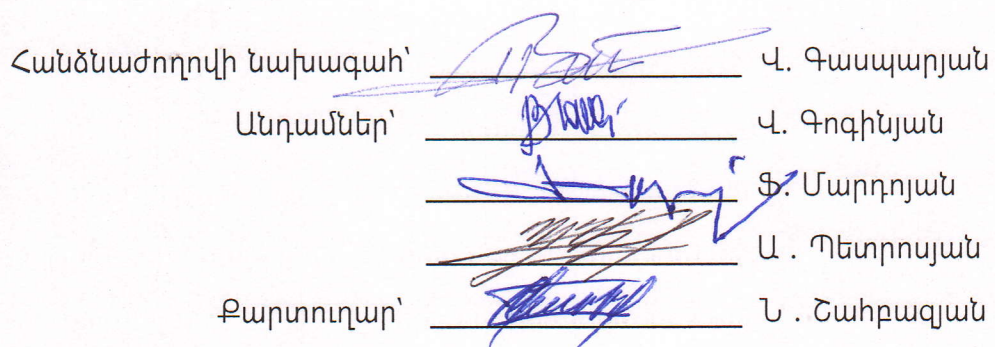 Հանձնաժողովի նախագահ՝ Վ. Գասպարյան
Անդամներ՝ Վ. Գոգինյան
Ֆ. Մարդոյան
Ա . Պետրոսյան
Քարտուղար՝ Ն . Շահբազյան